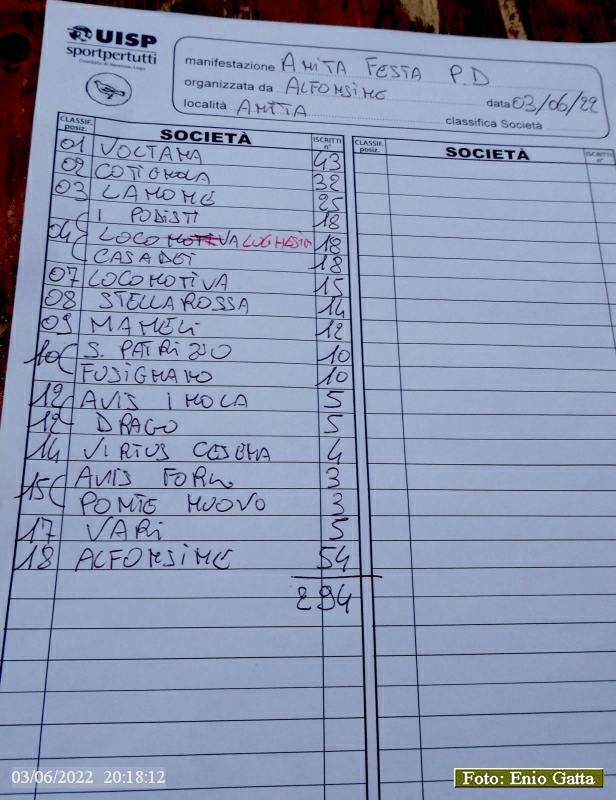 UISP
sportpertutti
Comitato di Ravenna-Lugo
manifestazione ANITA FESTA P.D
organizzata da ALFONSINE
data 03/06/22
località ANITA
classifica Società
CLASSIF. posiz. SOCIETÀ ISCRITTI n° CLASSIF. posiz. SOCIETÀ ISCRITTI n°
01 VOLTANA 43
02 COTIGNOLA 32
03 LAMONE 25
I PODISTI 18
04 LOCO MOTIVA LUGHESINA 18
CASADEI 18
07 LOCOMOTIVA 15
08 STELLA ROSSA 14
09 MAMELI 12
10 S. PATRIZIO 10
FUSIGNANO 10
12 AVIS IMOLA 5
12 DRAGO 5
14 VIRTUS CESENA 4
15 AVIS FORLI 3
PONTE NUOVO 3
17 VARI 5
18 ALFONSINE 54
294
03/06/2022 20:18:12
Foto: Enio Gatta